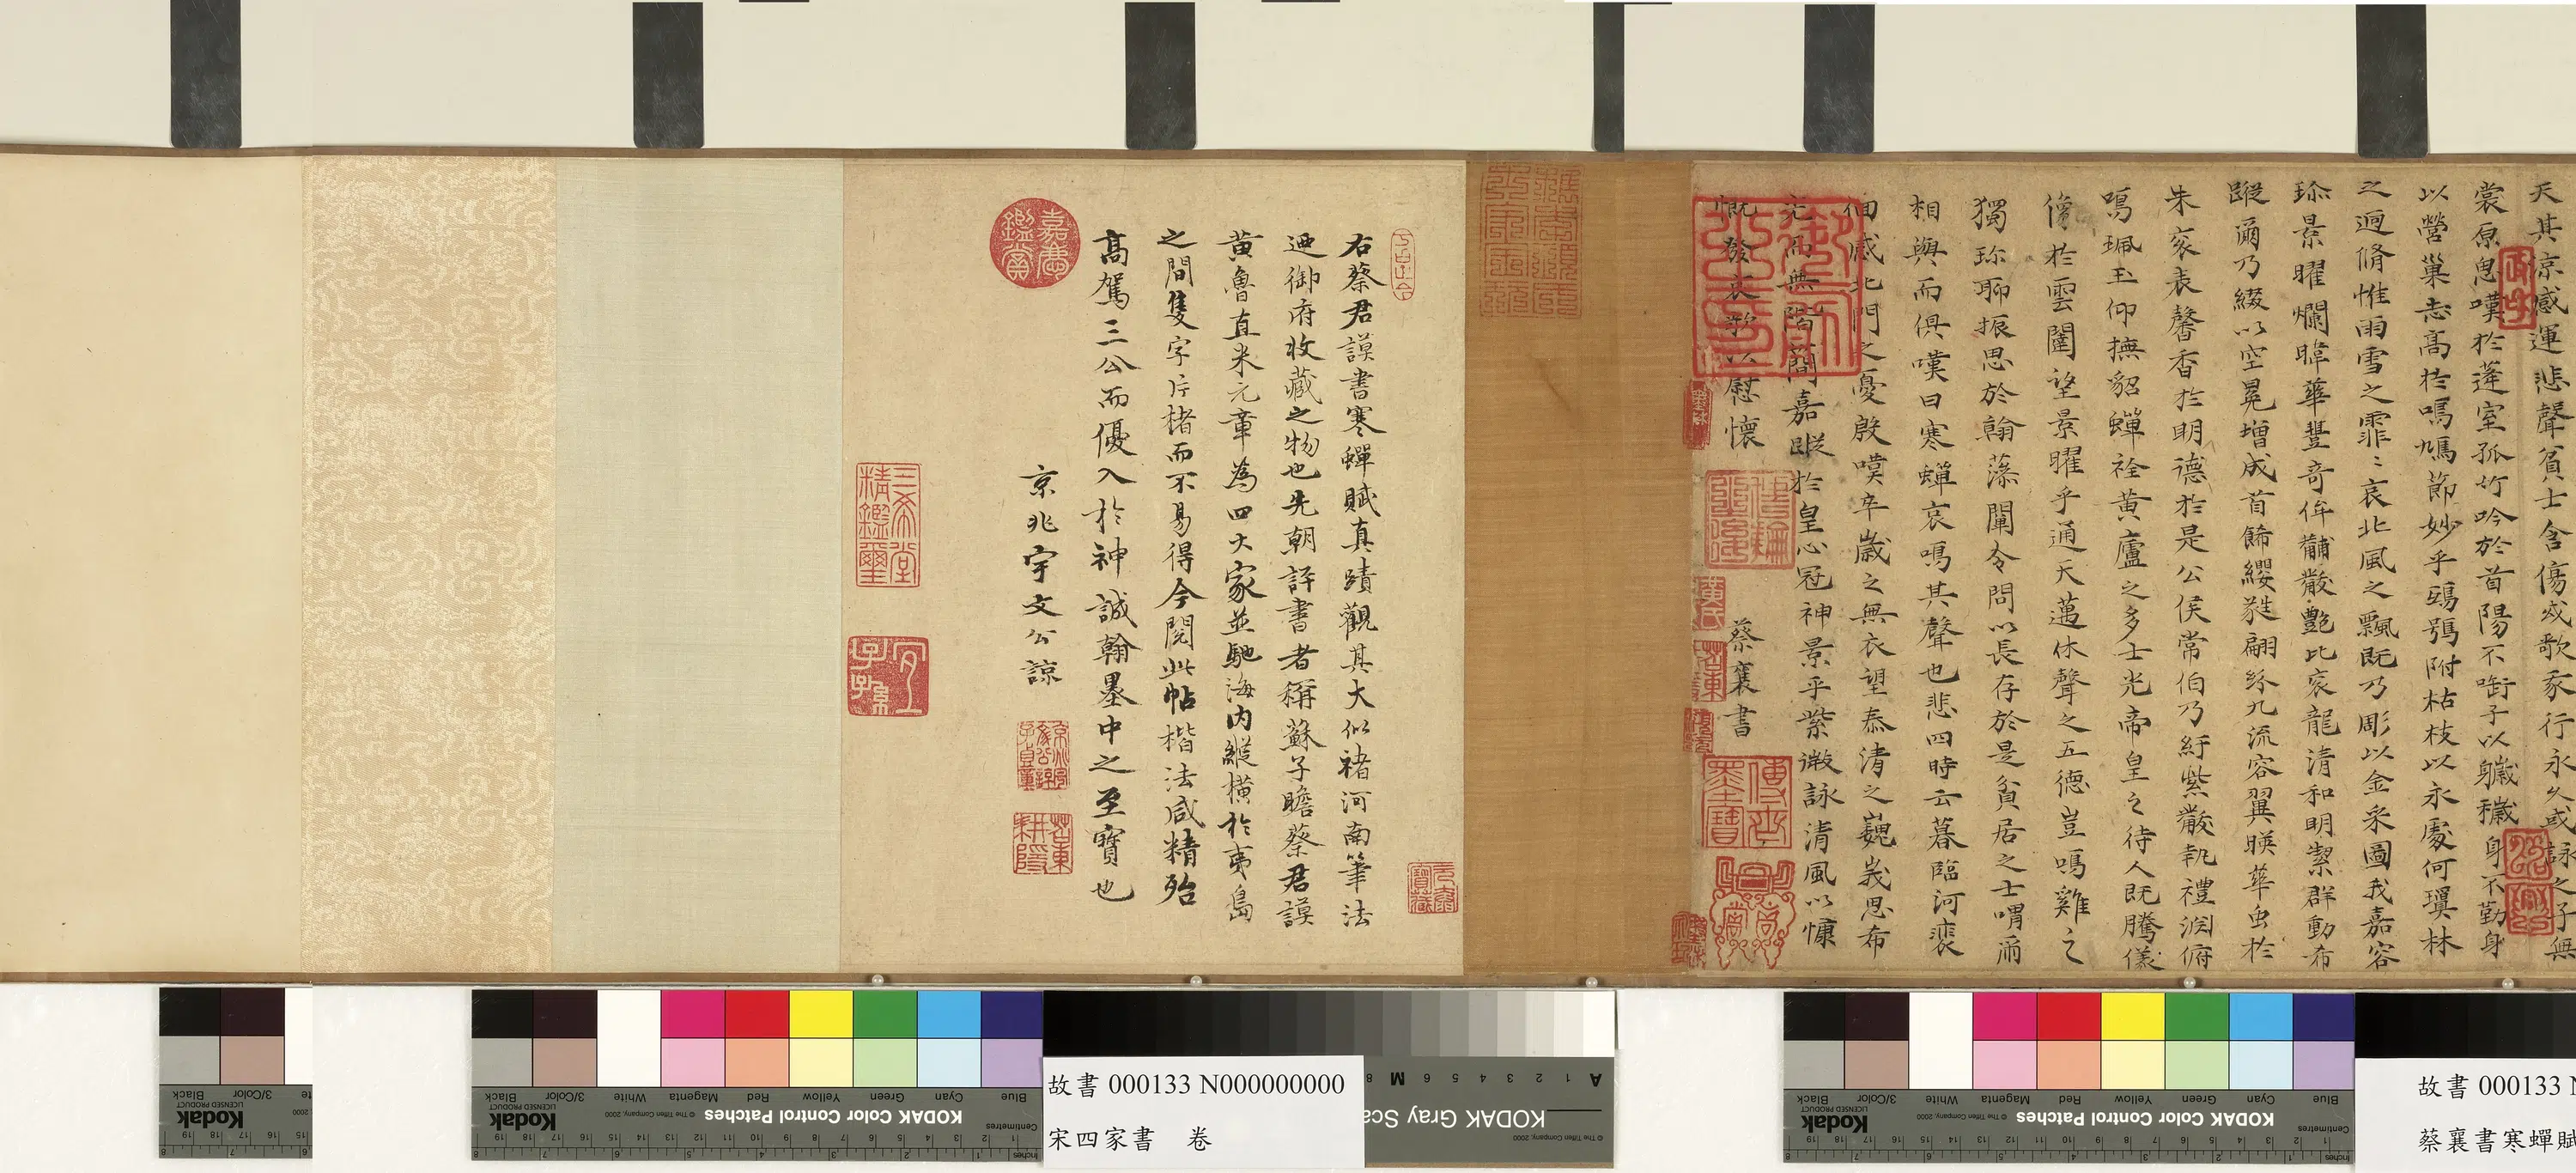 天其涼感運悲聲貧士含傷或歌我行永久或詠之子無
裳原思嘆於蓬室孤竹吟於首陽不銜子以軄穢身不勤身
以營巢志高於鳴鳩節妙乎鴟鴞附枯枝以永處何瓊林
之迥脩惟雨雪之霏〻哀北風之飄既乃彫以金采圖我嘉容
珍景曜爛暐華豐奇侔黼黻艷比袞龍清和明潔群動布
蹤爾乃綴以空冕增成首飾纓蕤翩紛九流容翼暎華虫於
朱袞表馨香於明德於是公侯常伯乃紆紫黻執禮淵俯
鳴珮玉仰撫貂蟬袨黃廬之多士光帝皇之待人既騰儀
像於雲闈望景曜乎通天邁休聲之五德豈鳴雞之
獨珍聊振思於翰藻闡令問以長存於是貧居之士喟爾
相與而俱嘆曰寒蟬哀鳴其聲也悲四時云暮臨河裴
佪感北門之憂殷嘆卒歲之無衣望泰清之巍峩思希
光而無階簡嘉蹤於皇心冠神景乎紫微詠清風以慷
慨發哀歌以慰懷
蔡襄書
右蔡君謨書寒蟬賦真蹟觀其大似褚河南筆法
迺御府收藏之物也先朝評書者稱蘇子瞻蔡君謨
黃魯直米元章為四大家並馳海內縱橫於夷島
之間隻字片楮而不易得今閱此帖楷法咸精殆
高駕三公而優入於神誠翰墨中之至寶也
京兆宇文公諒
嘉慶鑑賞
三希堂精鑑璽
宜子孫
故書 000133 N000000000
宋四家書 卷
故書 000133 N
蔡襄書寒蟬賦
Kodak
LICENSED PRODUCT
KODAK Color Control Patches
© The Tiffen Company, 2000
Blue Cyan Green Yellow Red Magenta White 3/Color Black
KODAK Gray Sca
Kodak
LICENSED PRODUCT
KODAK Color Control Patches
© The Tiffen Company, 2000
Blue Cyan Green Yellow Red Magenta White 3/Color Black
Kodak
LICENSED PRODUCT
3/Color Black